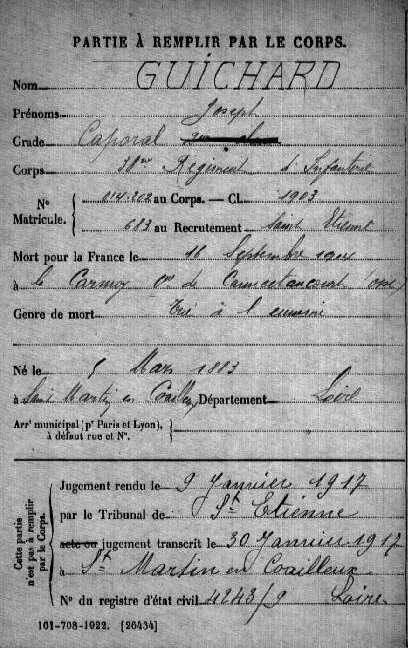 PARTIE À REMPLIR PAR LE CORPS.
Nom GUICHARD
Prénoms Joseph
Grade Caporal
Corps 38me Régiment d'Infanterie
Nº Matricule. { 014.202 au Corps. — Cl. 1903
683 au Recrutement Saint Etienne
Mort pour la France le 16 Septembre 1914
à le Carmoy Cne de Cannectancourt (Oise)
Genre de mort Tué à l'ennemi
Né le 5 Mars 1883
à Saint Martin en Coailleux Département Loire
Arrt municipal (pr Paris et Lyon), à défaut rue et Nº. {
Cette partie n'est pas à remplir par le Corps.
Jugement rendu le 9 Janvier 1917
par le Tribunal de St Etienne
acte ou jugement transcrit le 30 Janvier 1917
à St Martin en Coailleux
Nº du registre d'état civil 4243/9 Loire
101-708-1922. [26434]